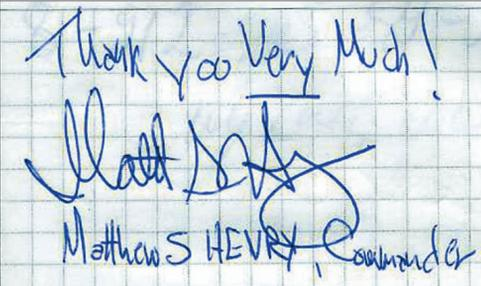 Thank you Very Much!
Matt
Matthew S HENRY, Commander